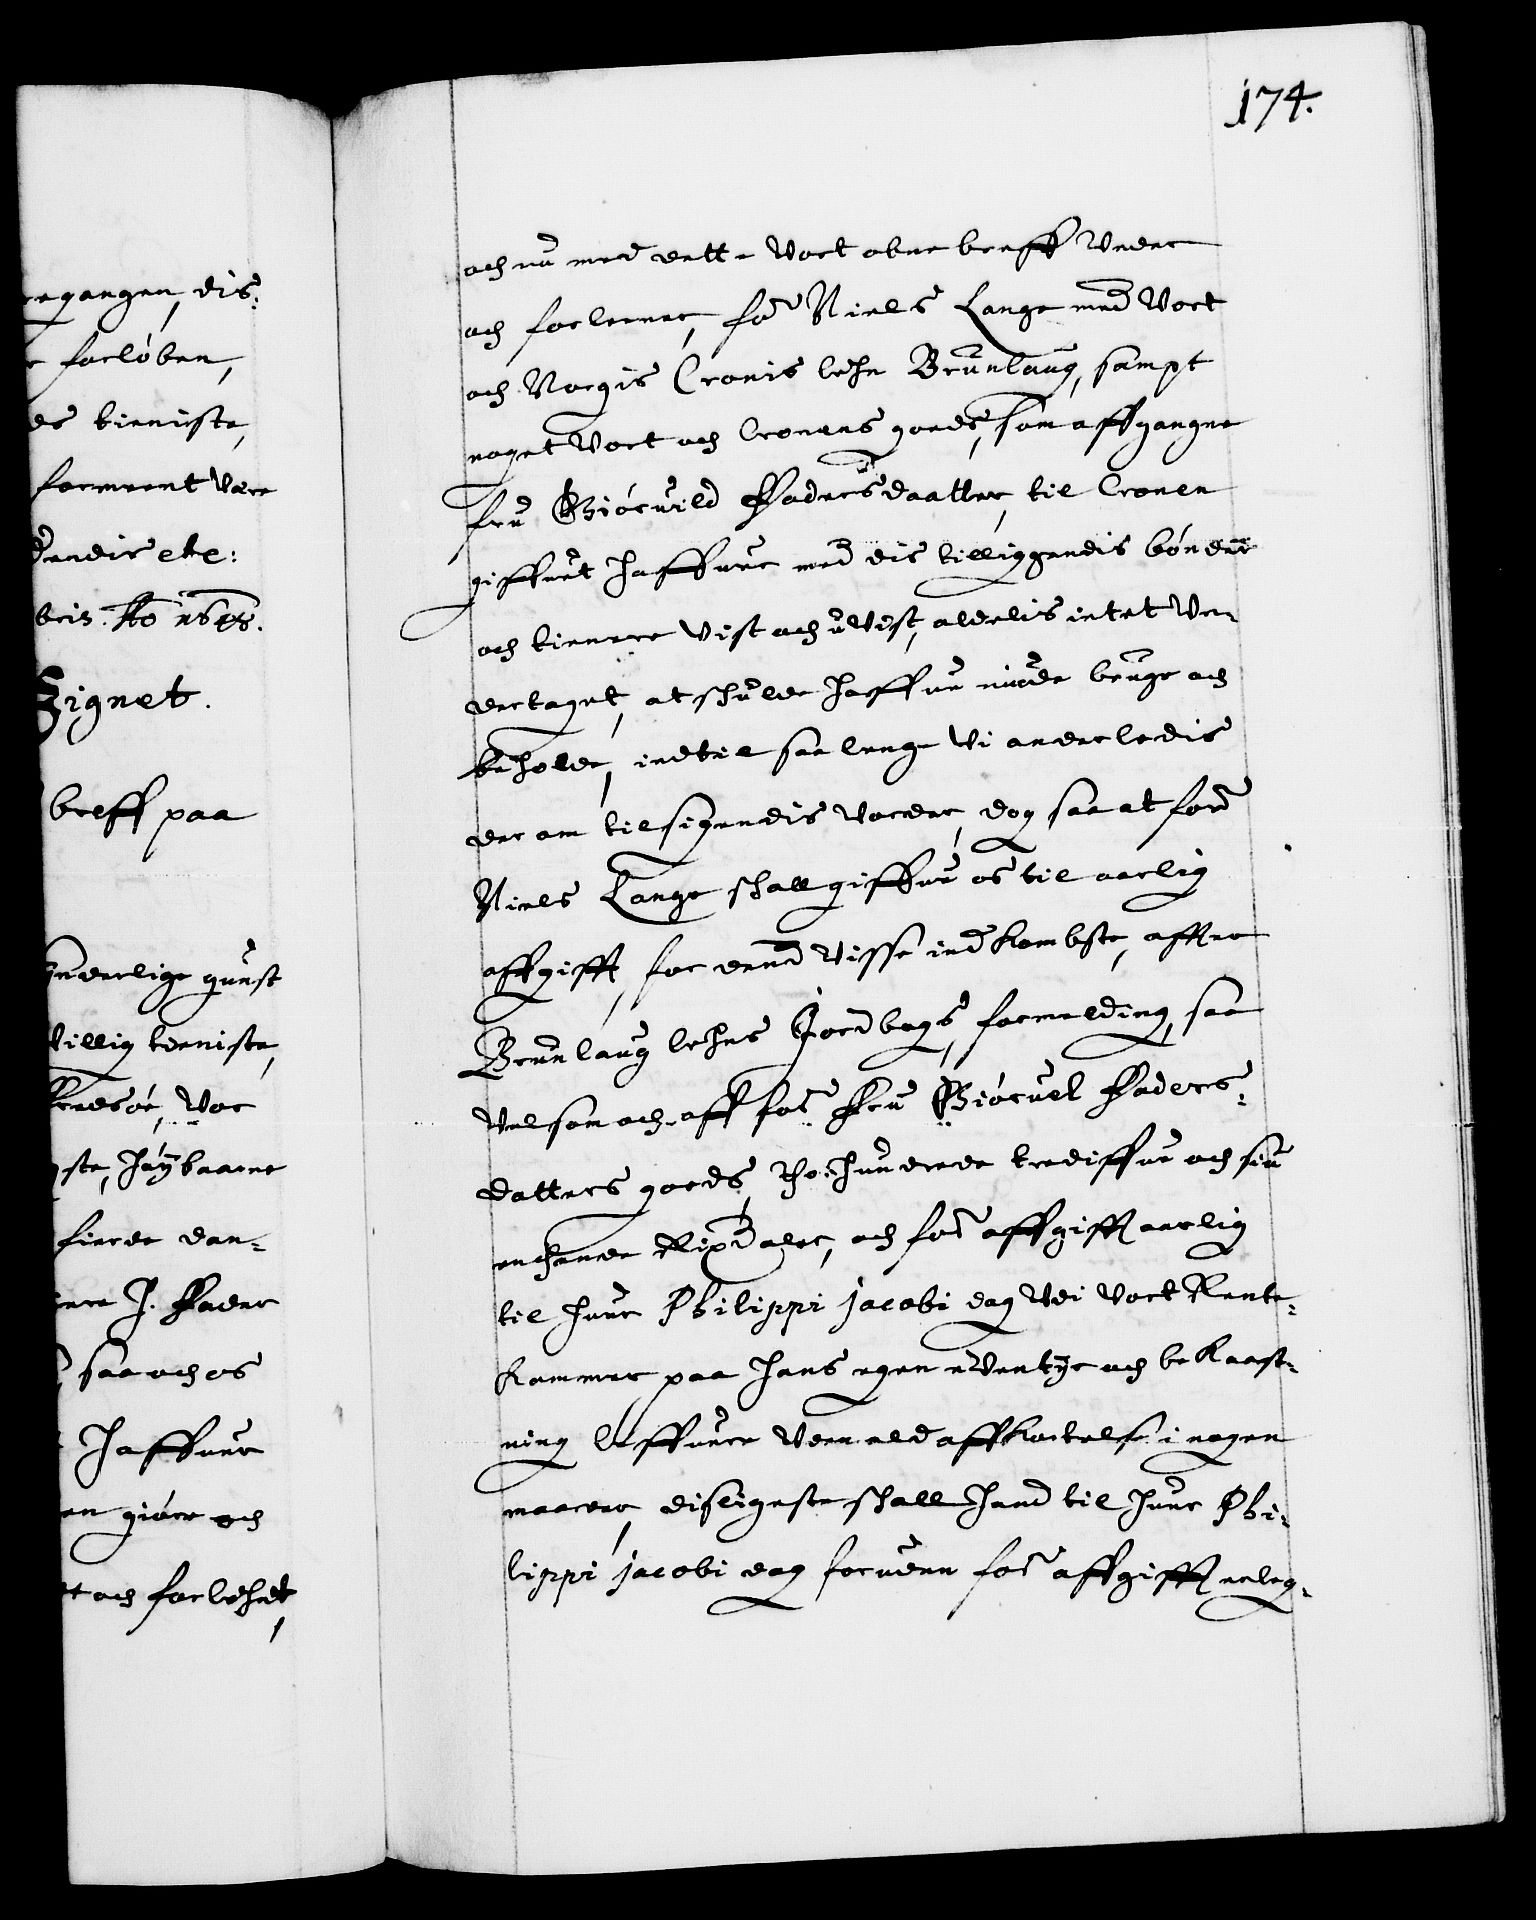 174.
egangen, dis:
forlöben,
tienniste,
formeent være
dendis etc:
Signet.
breff paa
ynderlige gunst
villig tienniste,
vor
Høybaarne
fierde dan-
J. Fader
saa och os
Haffuer
giöre och
och forlehnt,
och nu med dette Vort obne breff Vnder
och forlener, for Niels Lange med Vort
och Norgis Cronis lehn Brunlaug, sampt
noget Vort och Cronens goeds, som affgangne
fru Giöruild Faders daatter, til Cronen
giffuet haffuer med dis tilliggendis bönder
och tienere Vist och uVist, aldelis intet Vn-
dertaget, at schulle haffue niude bruge och
beholde, indtil saa lenge Vi anderledis
der om tilsigendis vorder, dog saa at for
Niels Lange schall giffue os til aarlig
affgifft, for dend Visse indkombste, effter
Brunlaug lehns Jordbogs formelding, saa
vel som och aff for Fru Giöruel Faders-
datters goeds, tho hundrede trediffue och siu
enchende Rixdaler, och for affgifft aarlig
til huer Philippi Jacobi dag Vdi Vort Rente-
Kammer paa hans egen eVentyr och bekaast-
ning leffuere Vden ald affkortelse i nogen
maader, disligeste schall hand til huer Phi-
lippi Jacobi dag foruden for affgifft erleg-